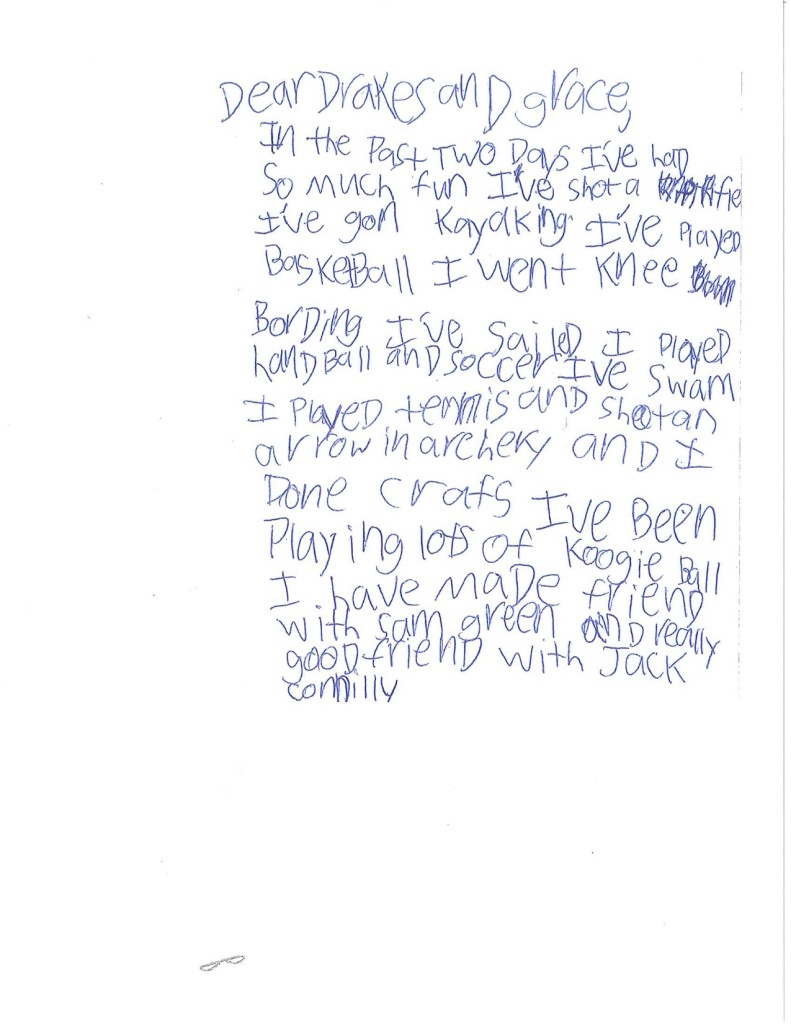 Dear Drakes anD grace,
In the Past TWO Days I've haD
So much fun I've shot a
I've gon Kayaking I've PlayeD
BasketBall I went Knee
BorDing I've SaileD I PlayeD
hanDBall anD soccer I've Swam
I PlayeD tennis anD shot an
arrow in archery anD I
Done crafs I've Been
Playing lots of Koogie Ball
I have maDe frienD
with sam green anD really
gooD frienD with Jack
connilly